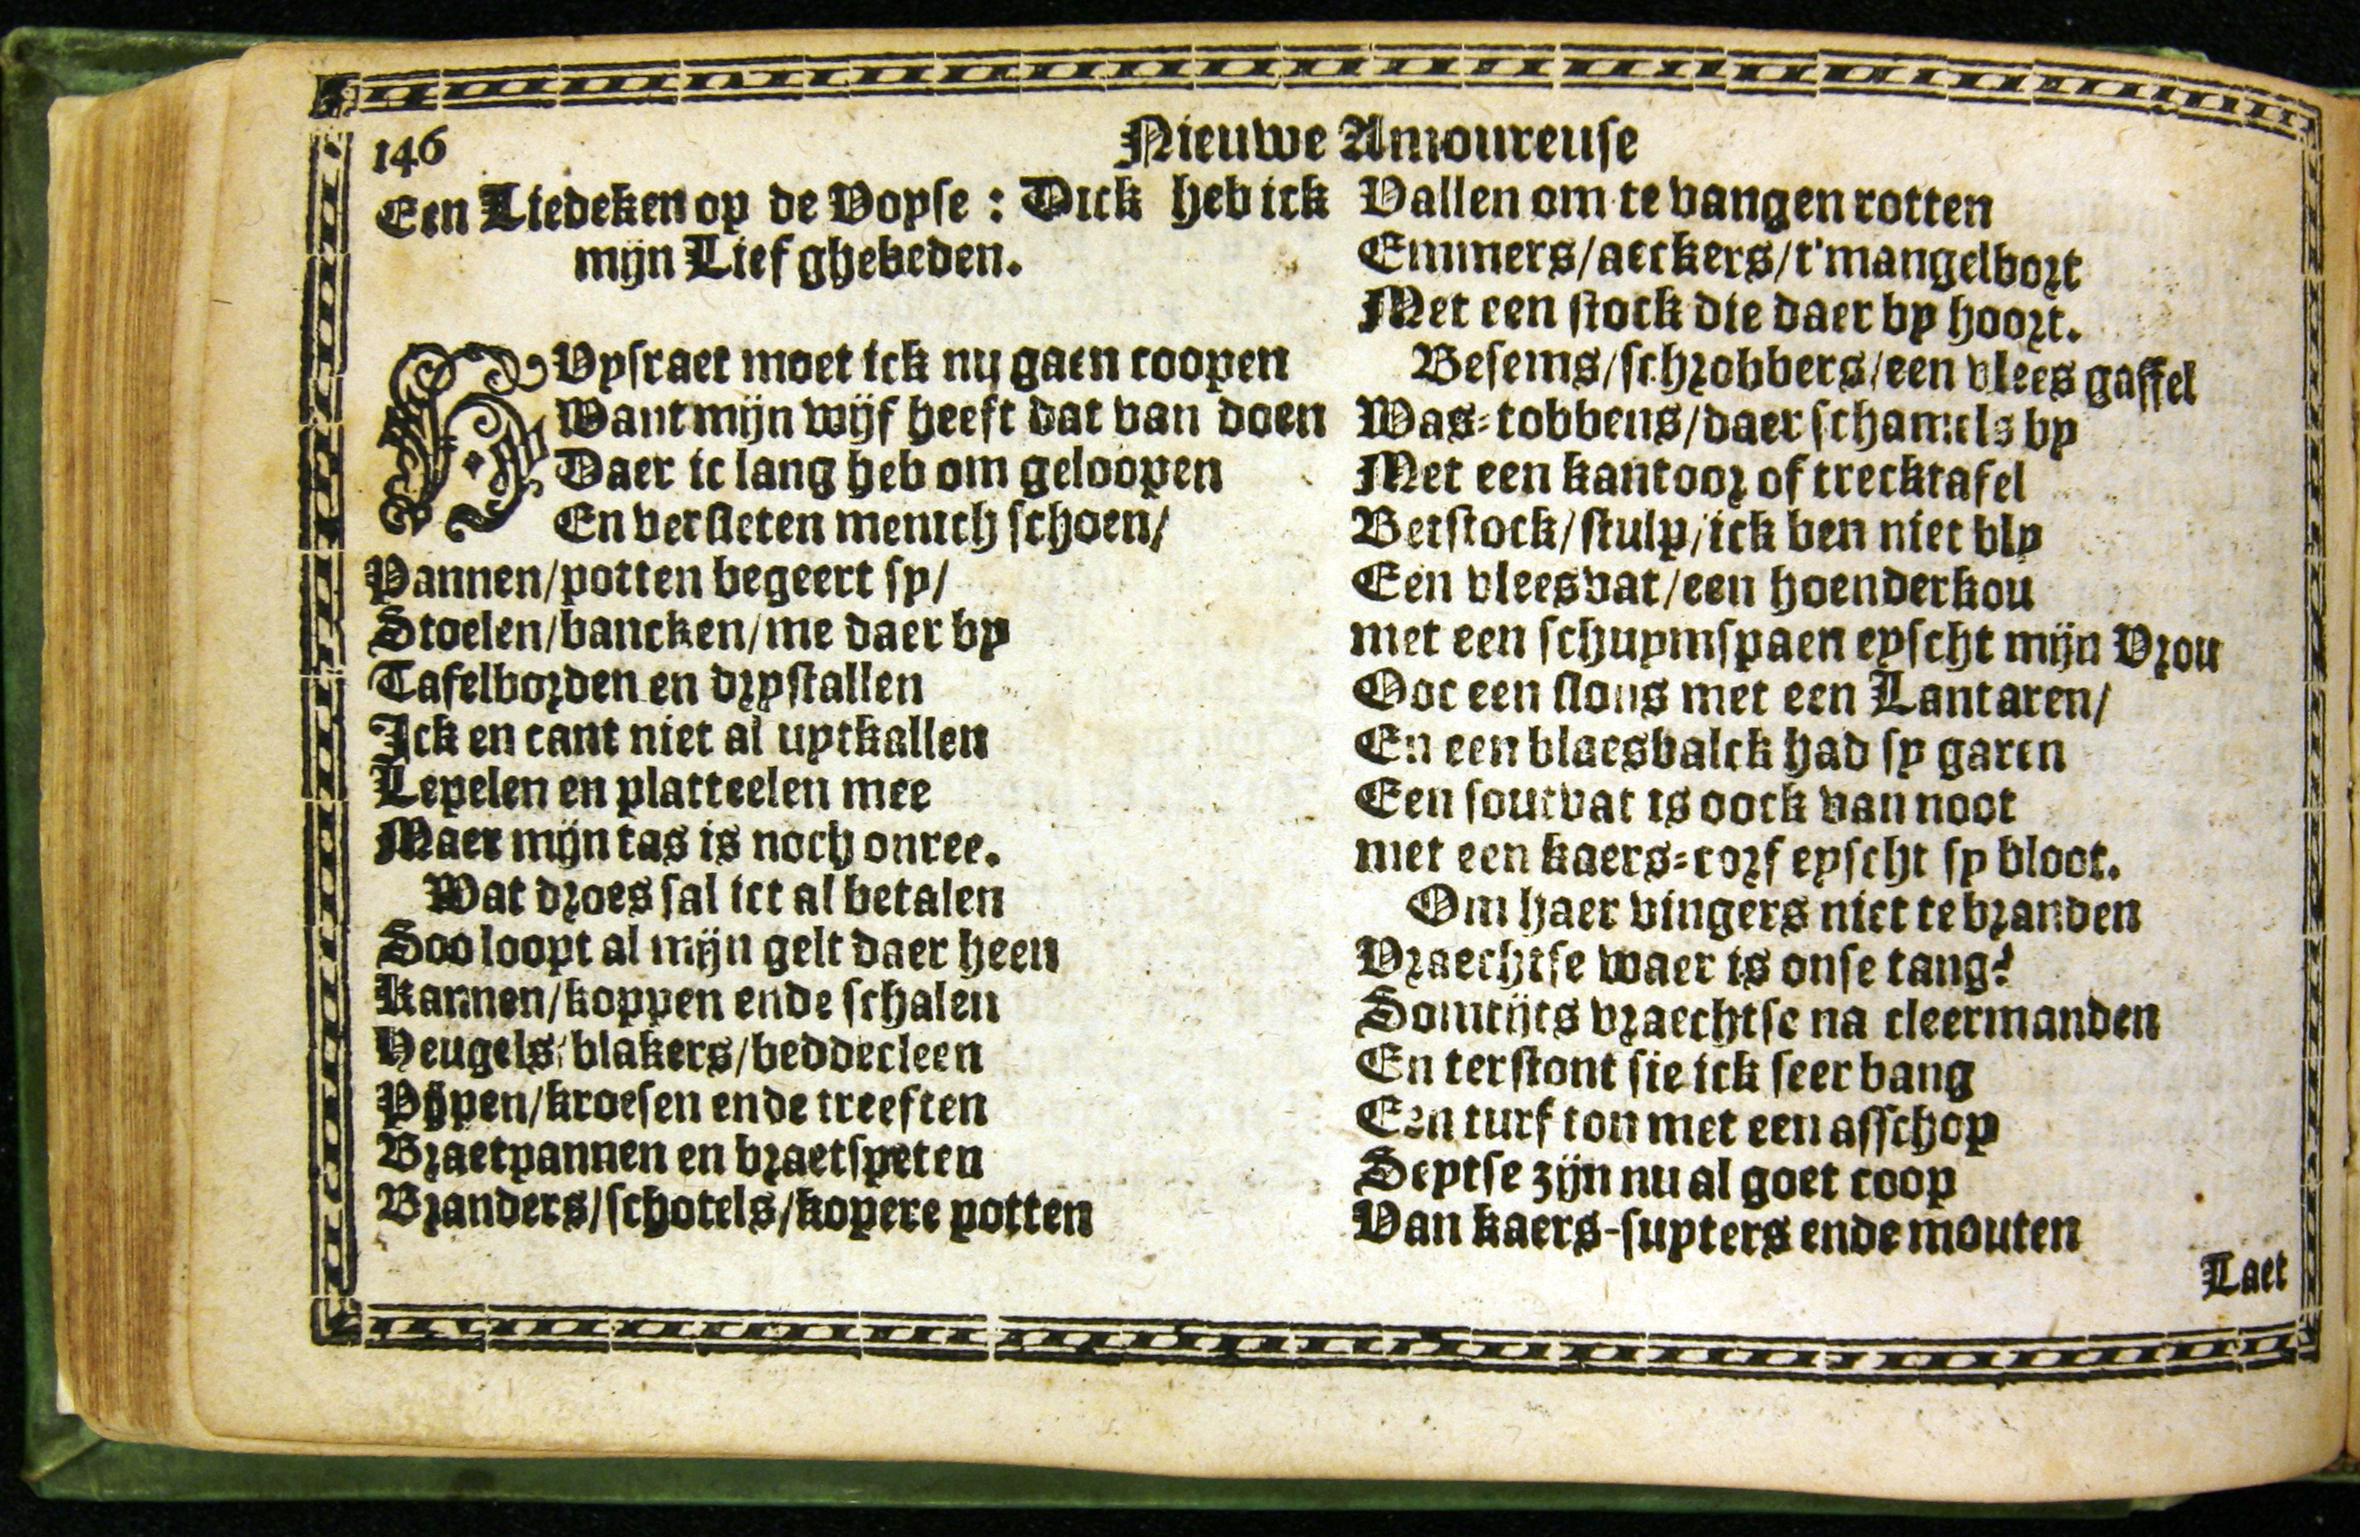 146
Nieuwe Amoureuse
Een Liedeken op de Voyse : Dick heb ick
mijn Lief ghebeden.
HUysraet moet ick nu gaen coopen
Want mijn wijf heeft dat van doen
Daer ic lang heb om geloopen
En versleten menich schoen/
Pannen/potten begeert sy/
Stoelen/bancken/me daer by
Tafelborden en drystallen
Ick en cant niet al uytkallen
Lepelen en platteelen mee
Maer mijn tas is noch onree.
Wat droes sal ict al betalen
Soo loopt al mijn gelt daer heen
Kannen/koppen ende schalen
Heugels/blakers/beddecleen
Pijpen/kroesen ende treeften
Braetpannen en braetspeten
Branders/schotels/kopere potten
Vallen om te vangen rotten
Emmers/aeckers/t'mangelbort
Met een stock die daer by hoort.
Besems/schrobbers/een vlees gaffel
Was-tobbens/daer schamels by
Met een kantoor of trecktafel
Betstock/stulp/ick ben niet bly
Een vleesvat/een hoenderkou
met een schuymspaen eyscht mijn Vrou
Ooc een slons met een Lantaren/
En een blaesbalck had sy garen
Een soutvat is oock van noot
met een kaers-corf eyscht sy bloot.
Om haer vingers niet te branden
Vraechtse waer is onse tang?
Somtijts vraechtse na cleermanden
En terstont sie ick seer bang
Een turf ton met een asschop
Seytse zijn nu al goet coop
Van kaers-snyters ende mouten
Laet